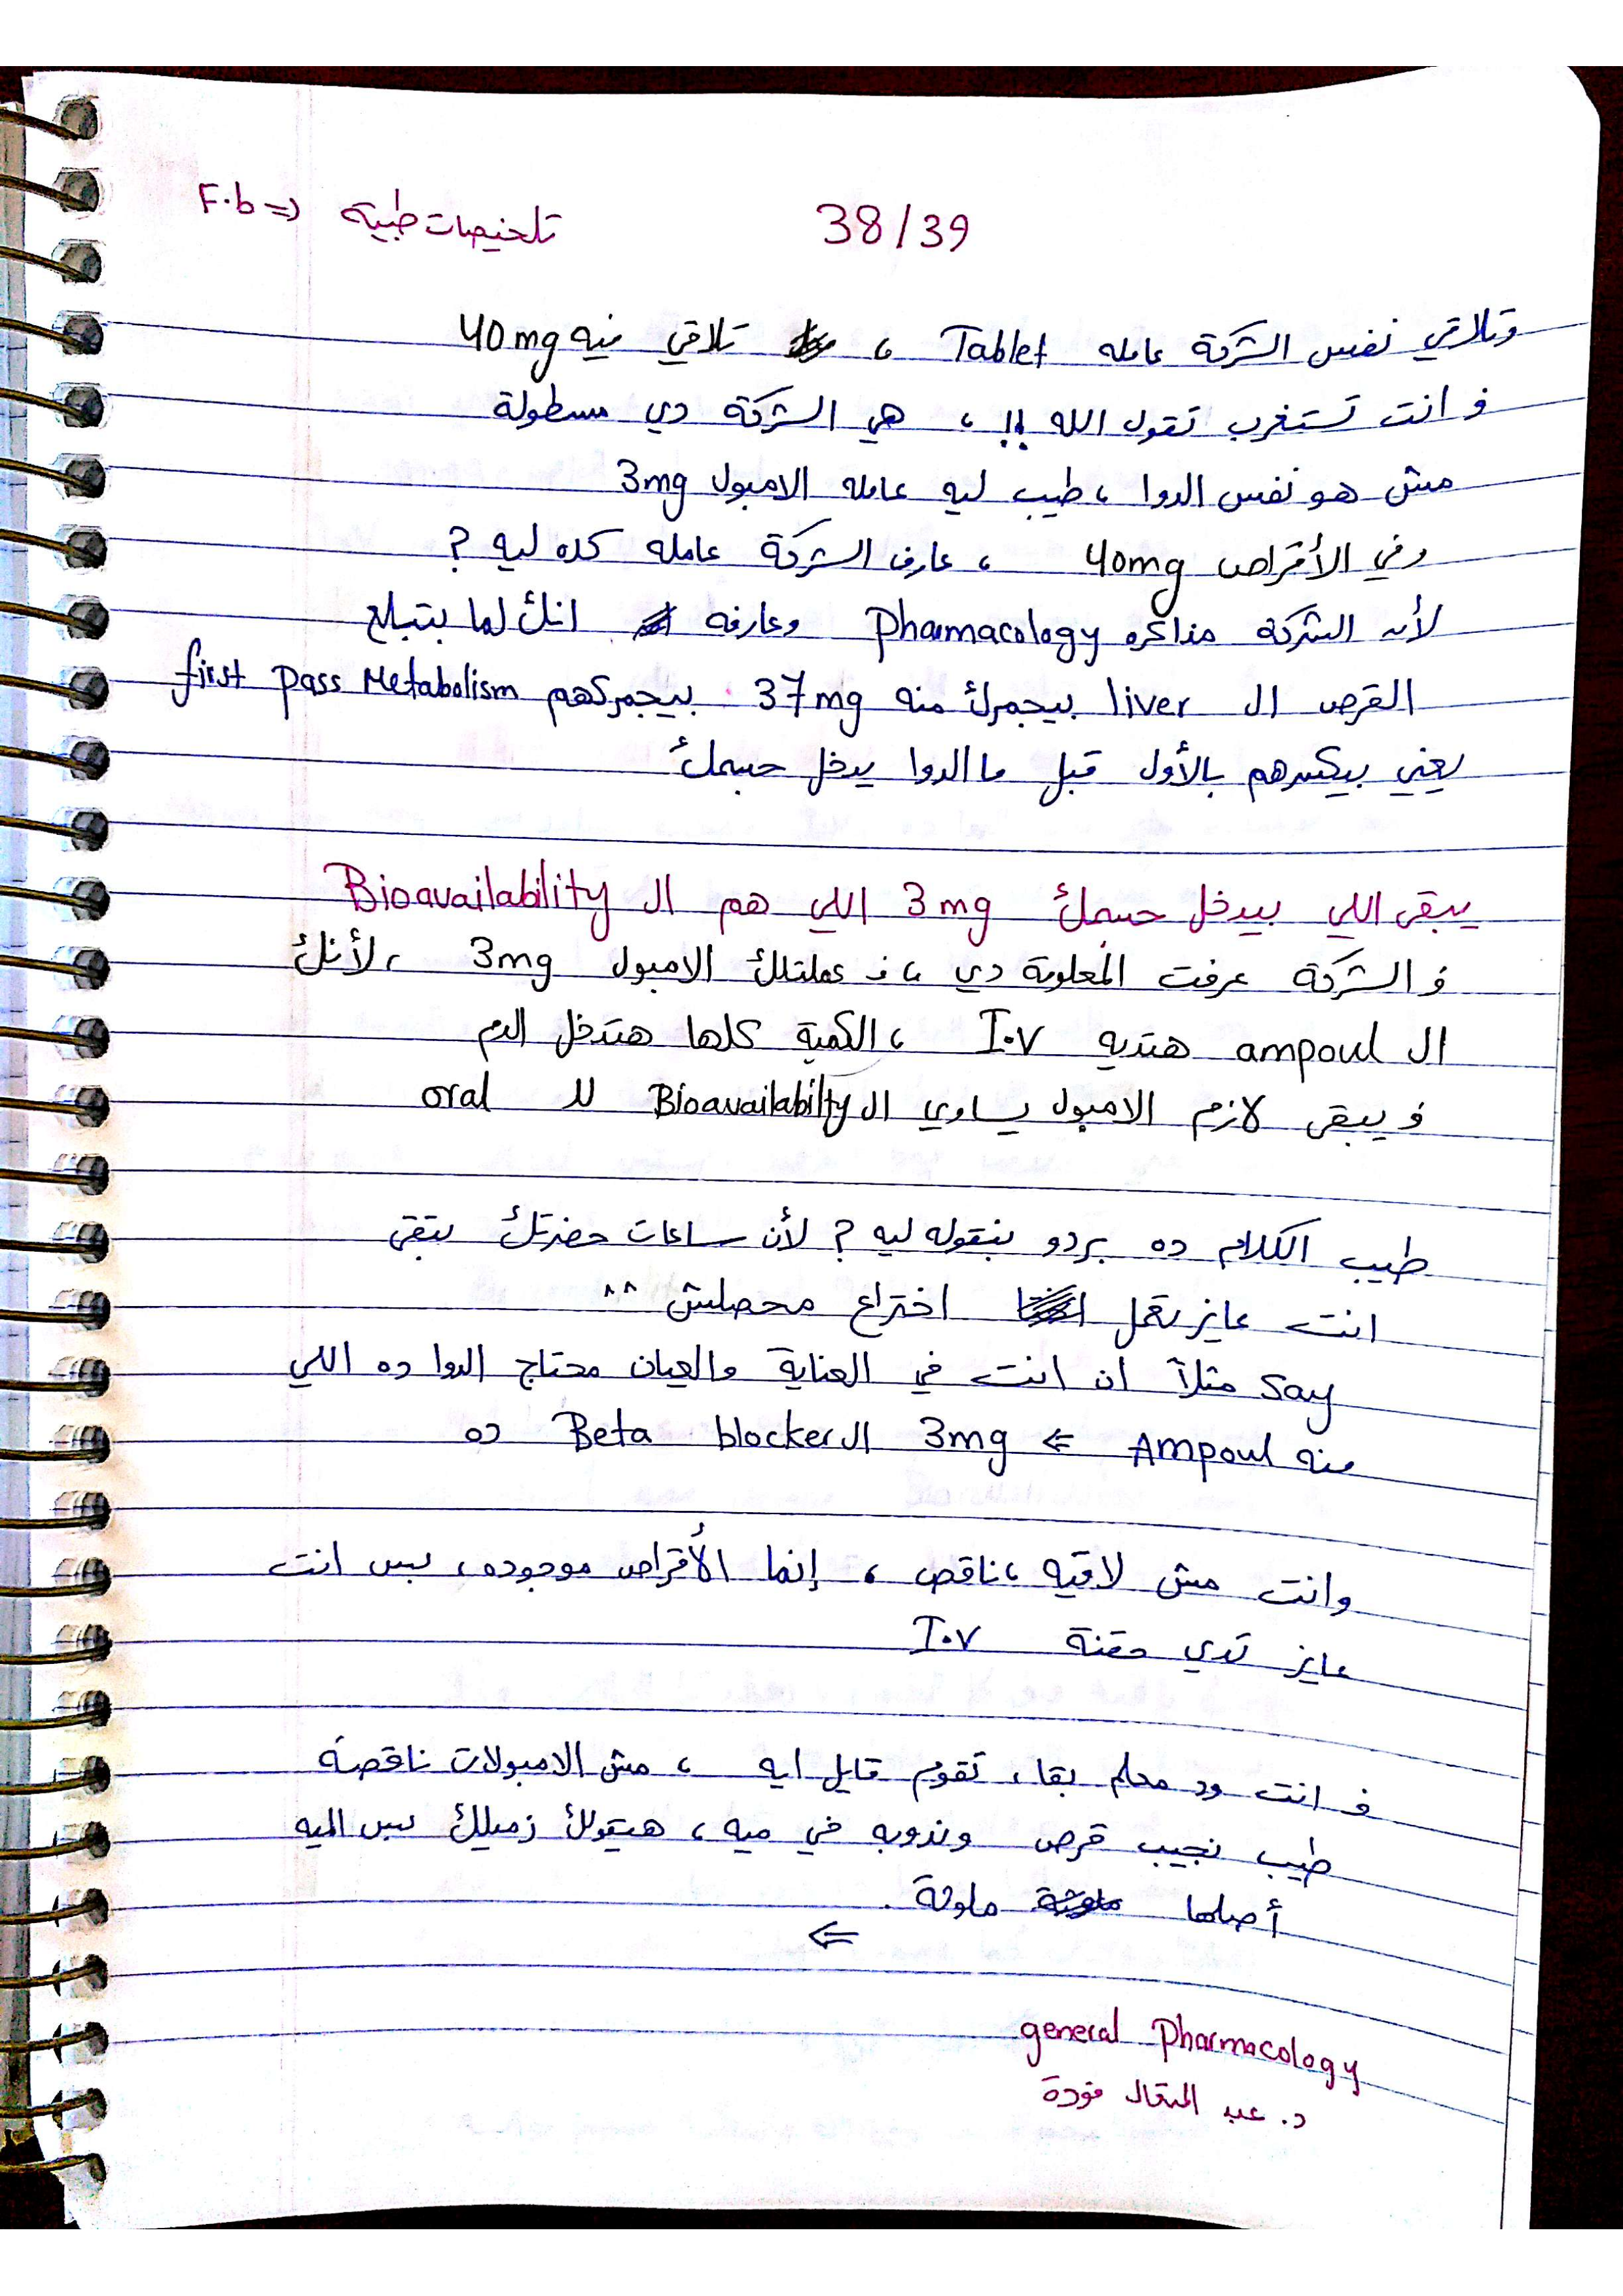 38/39
تلخيصات طبية <= F.b
وتلاقي نفس الشركة عامله Tablet ، تلاقي فيه 40mg
فـ انت تستغرب تقول الله !! ، هي الشركة دي مسطولة
مش هو نفس الدوا ، طيب ليه عامله الامبول 3mg
وفي الأقراص 40mg ، عارف الشركة عامله كده ليه ؟
لأن الشركة مذاكره Pharmacology وعارفه انك لما بتبلع
القرص الـ liver بيجمرك منه 37mg بيجمركهم first pass Metabolism
يعني بيكسرهم بالأول قبل ما الدوا يدخل جسمك
يبقى اللي بيدخل جسمك 3mg اللي هم الـ Bioavailability
فـ الشركة عرفت المعلومة دي ، فـ عملتلك الامبول 3mg ، لأنك
الـ ampoul هتديه I.V ، الكمية كلها هتدخل الدم
فـ يبقى لازم الامبول يساوي الـ Bioavailabilty للـ oral
طيب الكلام ده بردو بنقوله ليه ؟ لأن ساعات حضرتك بتبقى
انت عايز تعمل اختراع محصلش ^^
say مثلاً ان انت في العناية والعيان محتاج الدوا ده اللي
منه Ampoul <= 3mg الـ Beta blocker ده
وانت مش لاقيه ، ناقص ، إنما الأقراص موجوده ، بس انت
عايز تدي حقنة I.V
فـ انت ود معلم بقا ، تقوم قايل ايه ، مش الامبولات ناقصة
طيب نجيب قرص وندوبه في ميه ، هيقولك زميلك بس الميه
أصلها ملوثة .
<=
general Pharmacology
د. عبد المتعال فودة